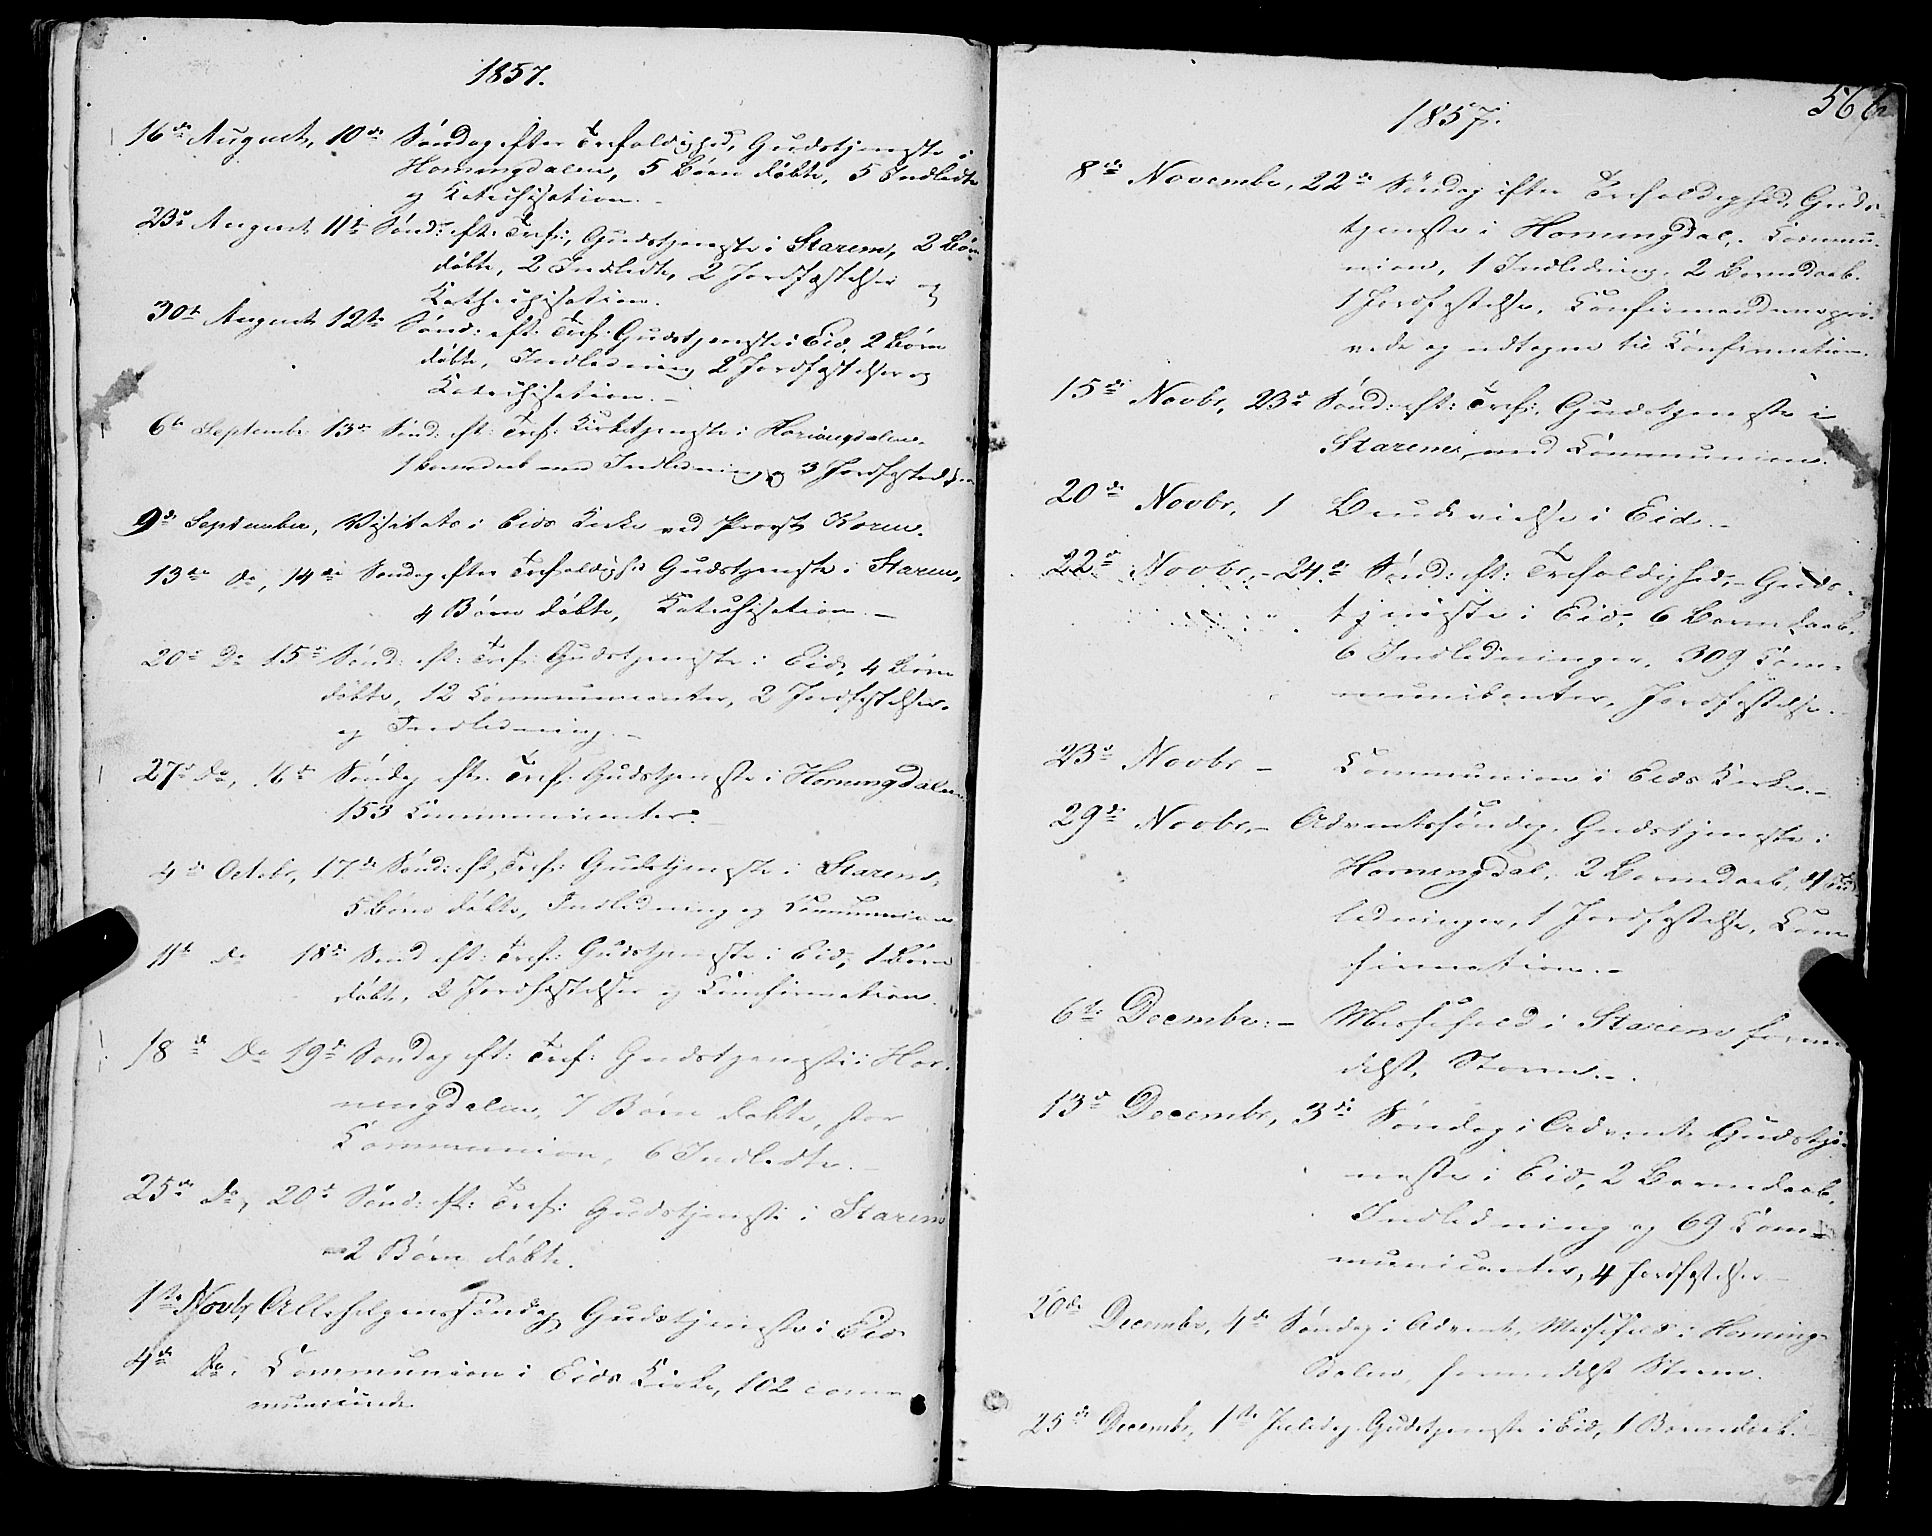 1857.
16de August, 10de Søndag efter Trefoldighed, Gudstjeneste i
Hornengdalen, 5 Børn døbte, 5 Indledte
og Katechisation.
23de August 11te Sønd: eft: Tref:, Gudstjeneste i Starem, 2 Børn
døbte, 2 Indledte, 2 Jordfæstelser og
Kathechisation.
30te August 12te Sønd: eft: Tref: Gudstjeneste i Eid, 2 Børn
døbte, Indledning 2 Jordfæstelser og
Katechisation. -
6te Septembr 13de Sønd: eft: Tref: Kirketjeneste i Hornengdalen.
1 Barnedaab med Indledning og 3 Jordfæstelser
9de September, Visitats i Eids Kirke ved Provst Koren.
13de Do, 14de Søndag efter Trefoldighd Gudstjeneste i Starem,
4 Børn døbte, Katechisation. -
20de Do 15de Sønd: eft: Tref: Gudstjeneste i Eid, 4 Børn
døbte, 12 Communicanter, 2 Jordfæstelser.
og Indledning. -
27de Do, 16de Søndag eft. Tref: Gudstjeneste i Hornengdalen
153 Communicanter. -
4de Octobr, 17de Sønd: eft. Tref: Gudstjeneste i Starem,
5 Børn døbte, Indledning og Communion
11te Do 18de Sønd eft: Tref: Gudstjeneste i Eid, 1 Børn
døbt, 2 Jordfæstelser og Confirmation.
18de Do 19de Søndag eft: Tref: Gudstjeneste i Hor-
nengdalen, 7 Børn døbte, stor
Communion, 6 Indledte. -
25de Do, 20de Sønd: eft: Tref: Gudstjeneste i Starem
2 Børn døbte.
1ste Novbr, Allehelgenssøndag Gudstjeneste i Eid
4de Do. Communion i Eids Kirke, 102 com-
municerede.
1857.
566
8de Novembr, 22de Søndag efter Trefoldighed, Guds-
tjeneste i Hornengdal. Commu-
nion, 1 Indledning. 2 Barnedaab.
1 Jordfæstelse, Confirmanderne prø-
vede og udtagne til Confirmation.
15de Novbr, 23de Sønd: eft: Tref: Gudstjeneste i
Starem, med Communion.
20de Novbr, 1 Brudevielse i Eid. -
22de Novbr, - 24de Sønd: eft: Trefoldighed. - Guds-
tjeneste i Eid, 6 Barnedaab.
6 Indledninger, 309 Com-
municanter, Jordfæstelse. -
23de Novbr - Communion i Eids Kirke. -
29de Novbr. - Adventssøndag. Gudstjeneste i
Hornengdal. 2 Barnedaab, 4 Ind-
ledninger, 1 Jordfæstelse, Con-
firmation. -
6te Decembr: - Messefald i Starem formé-
delst Storm. -
13de Decembr, 3de Søndag i Advent, Gudstje-
neste i Eid, 2 Barnedaab.
Indledning og 69 Com-
municanter, 4 Jordfæstelser -
20de Decembr, 4de Søndag i Advent, Messefald i Horneng-
dalen, formedelst Storm.
25de Decembr, 1ste Juledag Gudstjeneste i Eid, 1 Barnedaab.